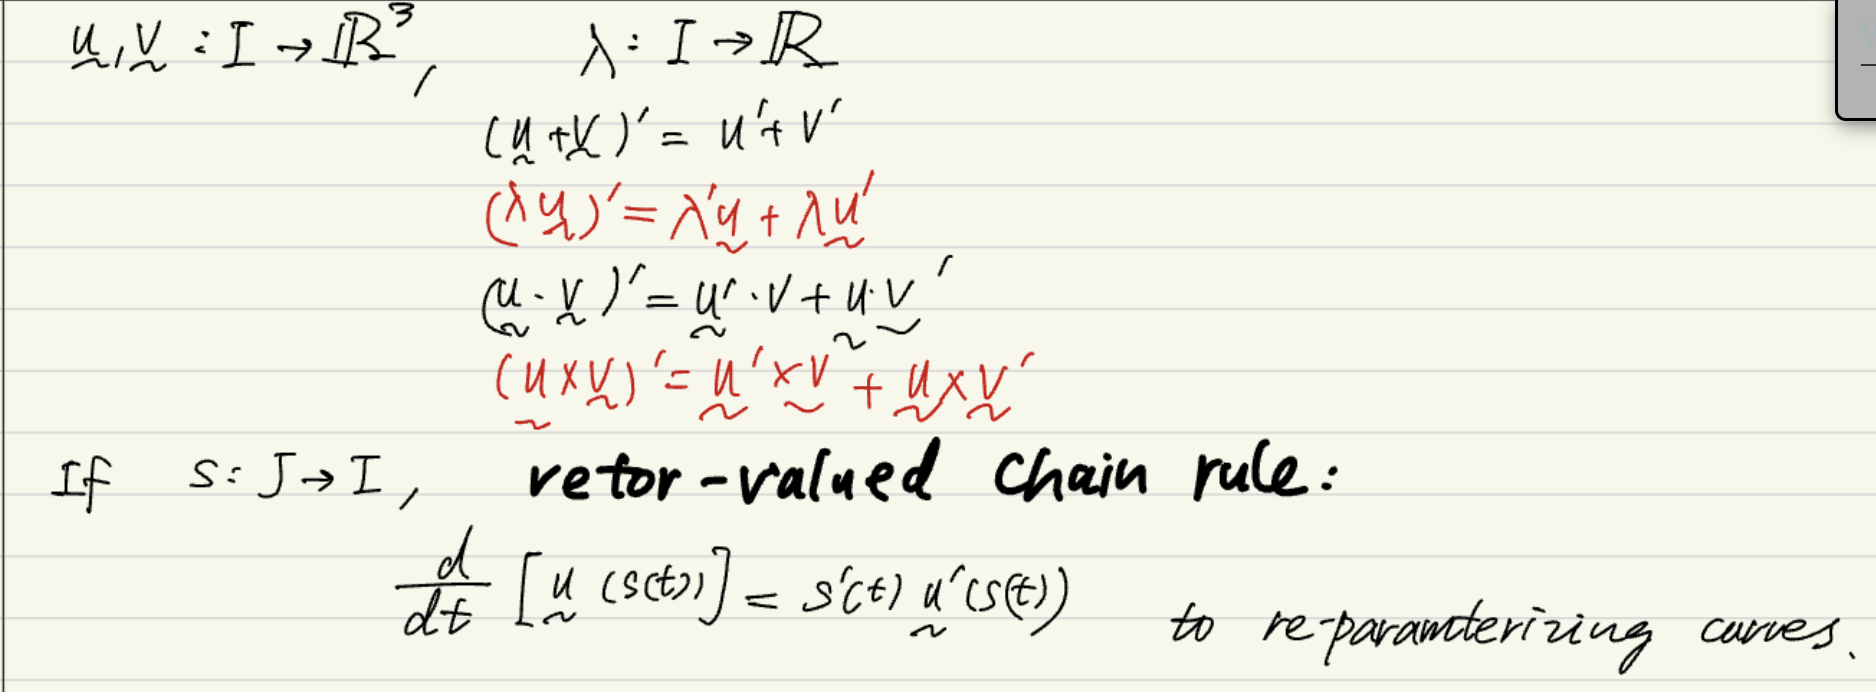 u, v : I → ℝ³, λ : I → ℝ
(u + v)' = u' + v'
(λu)' = λ'u + λu'
(u · v)' = u' · v + u · v'
(u × v)' = u' × v + u × v'
If s : J → I, vetor-valued Chain rule:
d/dt [u (s(t))] = s'(t) u'(s(t)) to re-paramterizing curves.